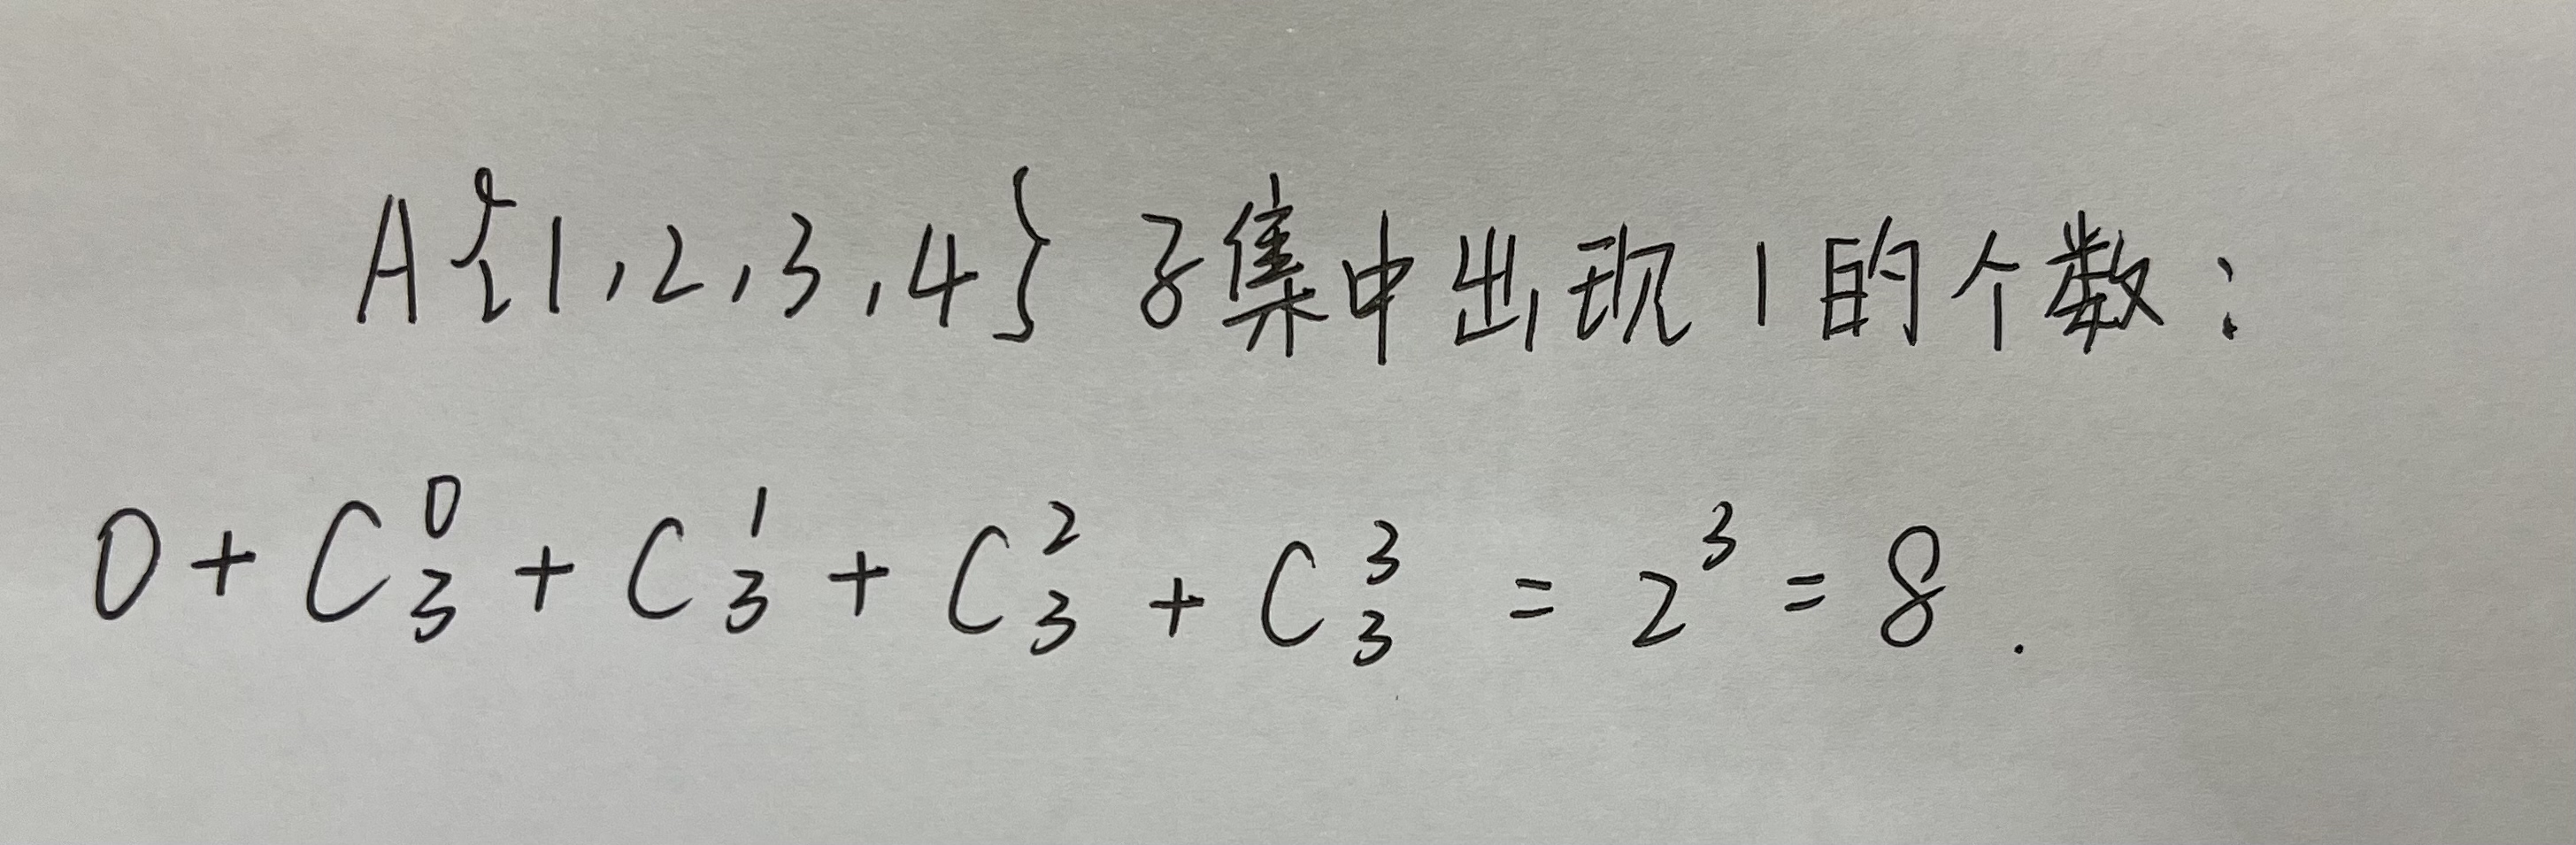 A{1,2,3,4} 子集中出现1的个数:
0 + C₃⁰ + C₃¹ + C₃² + C₃³ = 2³ = 8.